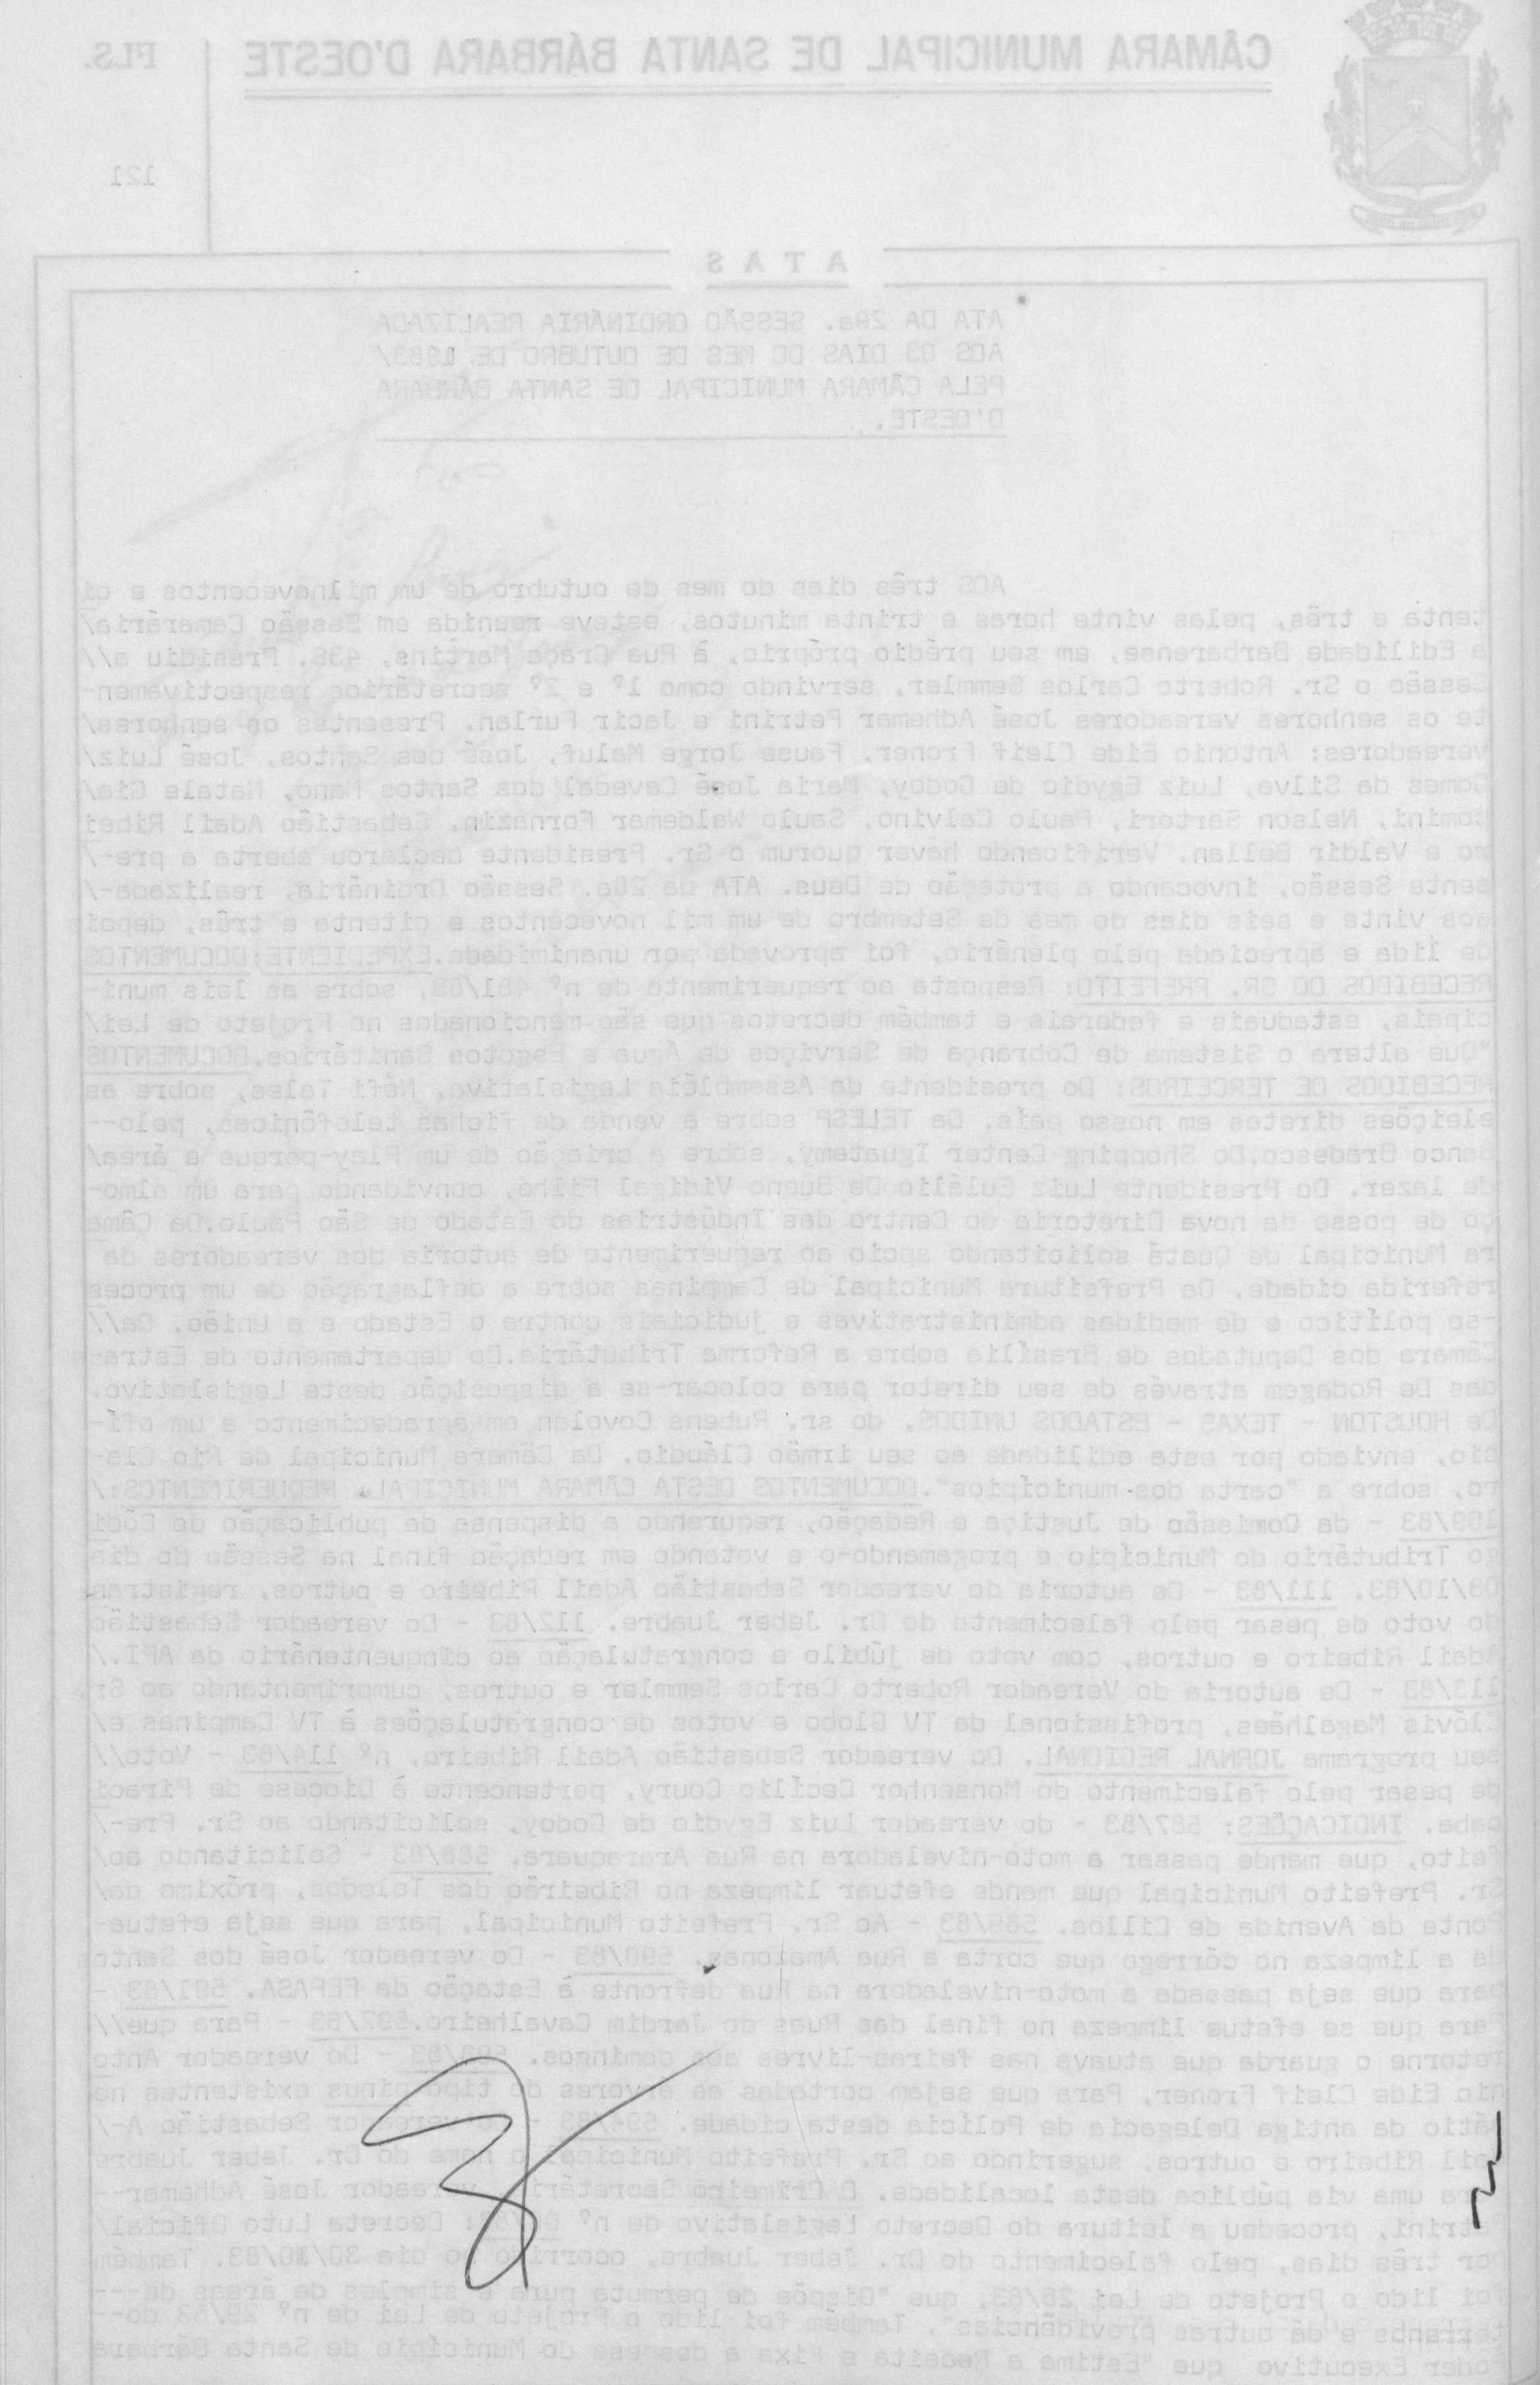 CÂMARA MUNICIPAL DE SANTA BÁRBARA D'OESTE
FLS.
121
ATAS
ATA DA 29a. SESSÃO ORDINÁRIA REALIZADA
AOS 03 DIAS DO MES DE OUTUBRO DE 1983/
PELA CÂMARA MUNICIPAL DE SANTA BÁRBARA
D'OESTE.
AOS três dias do mes de outubro de um milnovecentos e oi
tenta e três, pelas vinte horas e trinta minutos, esteve reunida em Sessão Camarária/
a Edilidade Barbarense, em seu prédio próprio, à Rua Graça Martins, 436. Presidiu a//
Sessão o Sr. Roberto Carlos Semmler, servindo como 1º e 2º secretários respectivamen-
te os senhores vereadores José Adhemar Petrini e Jacir Furlan. Presentes os senhores/
vereadores: Antonio Eide Cleif Froner, Fause Jorge Maluf, José dos Santos, José Luiz/
Gomes da Silva, Luiz Egydio de Godoy, Maria José Cavedal dos Santos Mano, Natale Gia/
comini, Nelson Sartori, Paulo Calvino, Saulo Waldemar Fornazin, Sebastião Adail Ribei
ro e Valdir Bellan. Verificando haver quorum o Sr. Presidente declarou aberta a pre-/
sente Sessão, invocando a proteção de Deus. ATA da 28a. Sessão Ordinária, realizada-/
aos vinte e seis dias do mes de Setembro de um mil novecentos e oitenta e três, depois
de lida e apreciada pelo plenário, foi aprovada por unanimidade.EXPEDIENTE:DOCUMENTOS
RECEBIDOS DO SR. PREFEITO: Resposta ao requerimento de nº 481/83, sobre as leis muni-
cipais, estaduais e federais e também decretos que são mencionados no Projeto de Lei/
"Que altera o Sistema de Cobrança de Serviços de Água e Esgotos Sanitários.DOCUMENTOS
RECEBIDOS DE TERCEIROS: Do presidente da Assembléia Legislativa, Néfi Tales, sobre as
eleições diretas em nosso país. Da TELESP sobre a venda de fichas telefônicas, pelo--
Banco Bradesco.Do Shopping Center Iguatemy, sobre a criação de um Play-parque e área/
de lazer. Do Presidente Luiz Eulálio De Bueno Vidigal Filho, convidando para um almo-
ço de posse da nova Diretoria do Centro das Indústrias do Estado de São Paulo.Da Câma
ra Municipal de Quatá solicitando apoio ao requerimento de autoria dos vereadores da
referida cidade. Da Prefeitura Municipal de Campinas sobre a deflagração de um proces
-so político e de medidas administrativas e judiciais contra o Estado e a União. Da//
Câmara dos Deputados de Brasília sobre a Reforma Tributária.Do departamento de Estra
das De Rodagem através de seu diretor para colocar-se a disposição deste Legislativo.
De HOUSTON - TEXAS - ESTADOS UNIDOS, do sr. Rubens Covolan em agradecimento a um ofí-
cio, enviado por esta edilidade ao seu irmão Cláudio. Da Câmara Municipal de Rio Cla-
ro, sobre a "carta dos municípios".DOCUMENTOS DESTA CÂMARA MUNICIPAL. REQUERIMENTOS:/
109/83 - da Comissão de Justiça e Redação, requrendo a dispensa da publicação do Códi
go Tributário do Município e progamando-o e votando em redação final na Sessão do dia
03/10/83. 111/83 - De autoria do vereador Sebastião Adail Ribeiro e outros, registran
do voto de pesar pelo falecimento do Dr. Jeber Juabre. 112/83 - Do vereador Sebastião
Adail Ribeiro e outros, com voto de júbilo e congratulação ao cinquentenário da API./
113/83 - De autoria do Vereador Roberto Carlos Semmler e outros, cumprimentando ao Sr
Clóvis Magalhães, profissional da TV Globo e votos de congratulações à TV Campinas e/
seu programa JORNAL REGIONAL. Do vereador Sebastião Adail Ribeiro, nº 114/83 - Voto//
de pesar pelo falecimento do Monsenhor Cecílio Coury, pertencente à Diocese de Piraci
caba. INDICAÇÕES: 587/83 - do vereador Luiz Egydio de Godoy, solicitando ao Sr. Pre-/
feito, que mande passar a moto-niveladora na Rua Araraquara. 588/83 - Solicitando ao/
Sr. Prefeito Municipal que mande efetuar limpeza no Ribeirão dos Toledos, próximo da/
Ponte da Avenida de Cillos. 589/83 - Ao Sr. Prefeito Municipal, para que seja efetua-
da a limpeza no córrego que corta a Rua Amazonas. 590/83 - Do vereador José dos Santos
para que seja passada a moto-niveladora na Rua defronte à Estação da FEPASA. 591/83 -
Para que se efetue limpeza no final das Ruas do Jardim Cavalheiro.592/83 - Para que//
retorne o guarda que atuava nas feiras-livres aos domingos. 593/83 - Do vereador Anto
nio Eide Cleif Froner, Para que sejam cortadas as árvores do tipo pinus existentes no
pátio da antiga Delegacia de Polícia desta cidade. 594/83 - Do vereador Sebastião A-/
dail Ribeiro e outros, sugerindo ao Sr. Prefeito Municipal o nome do Dr. Jeber Juabre
para uma via pública desta localidade. O Primeiro Secretário vereador José Adhemar--
Petrini, procedeu a leitura do Decreto Legislativo de nº Decreta Luto Oficial/
por três dias, pelo falecimento do Dr. Jeber Juabre, ocorrido no dia 30/10/83. Também
foi lido o Projeto de Lei 26/83, que "Dispõe de permuta pura e simples de áreas de---
terrenos e dá outras providências". Também foi lido o Projeto de Lei de nº 29/83 do--
Poder Executivo que "Estima a Receita e Fixa a despesa do Município de Santa Bárbara